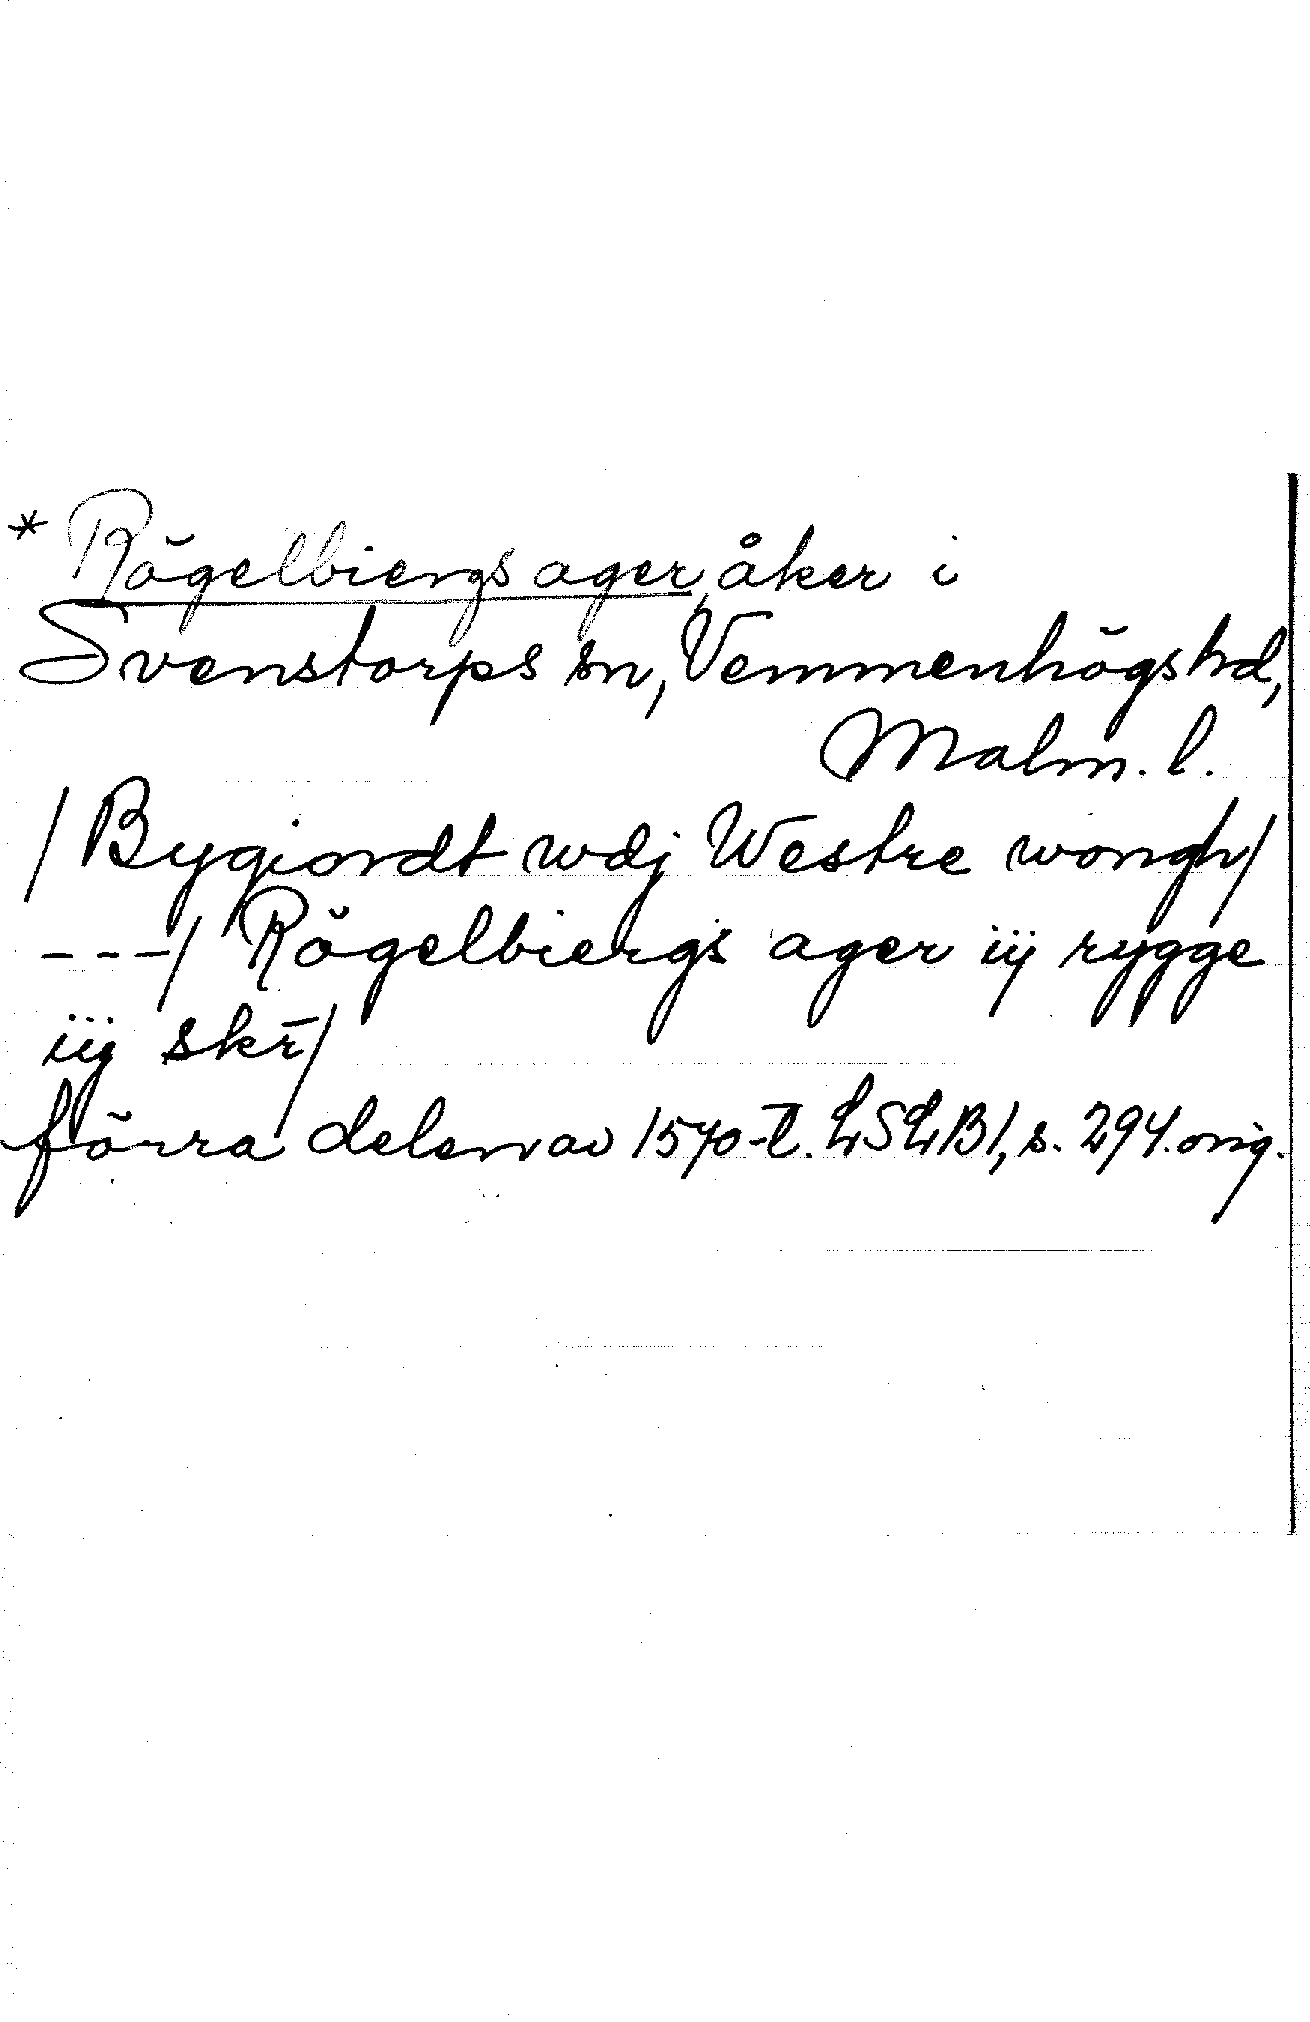 * Rögelbiergs ager, åker i
Svenstorps sn, Vemmenhögs hd,
Malm. l.
/ Bygiordt wdj Westre wongh/
---/ Rögelbiergs ager iij rygge
iij skr̄/
förra delen av 1570-t. LSLB1, s. 294. orig.